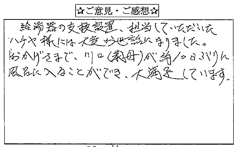 ☆ご意見・ご感想☆
給湯器の交換設置、担当していただいた
ハチヤ様には大変お世話になりました。
おかげさまで、川口(義母)が約10日ぶりに
風呂に入ることができ、大満足しています。